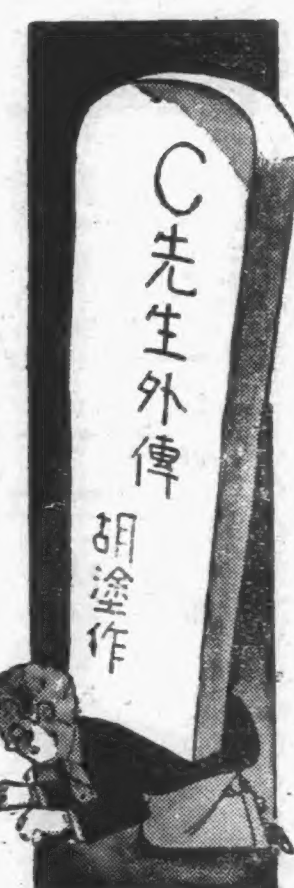 C先生外傳
胡塗作